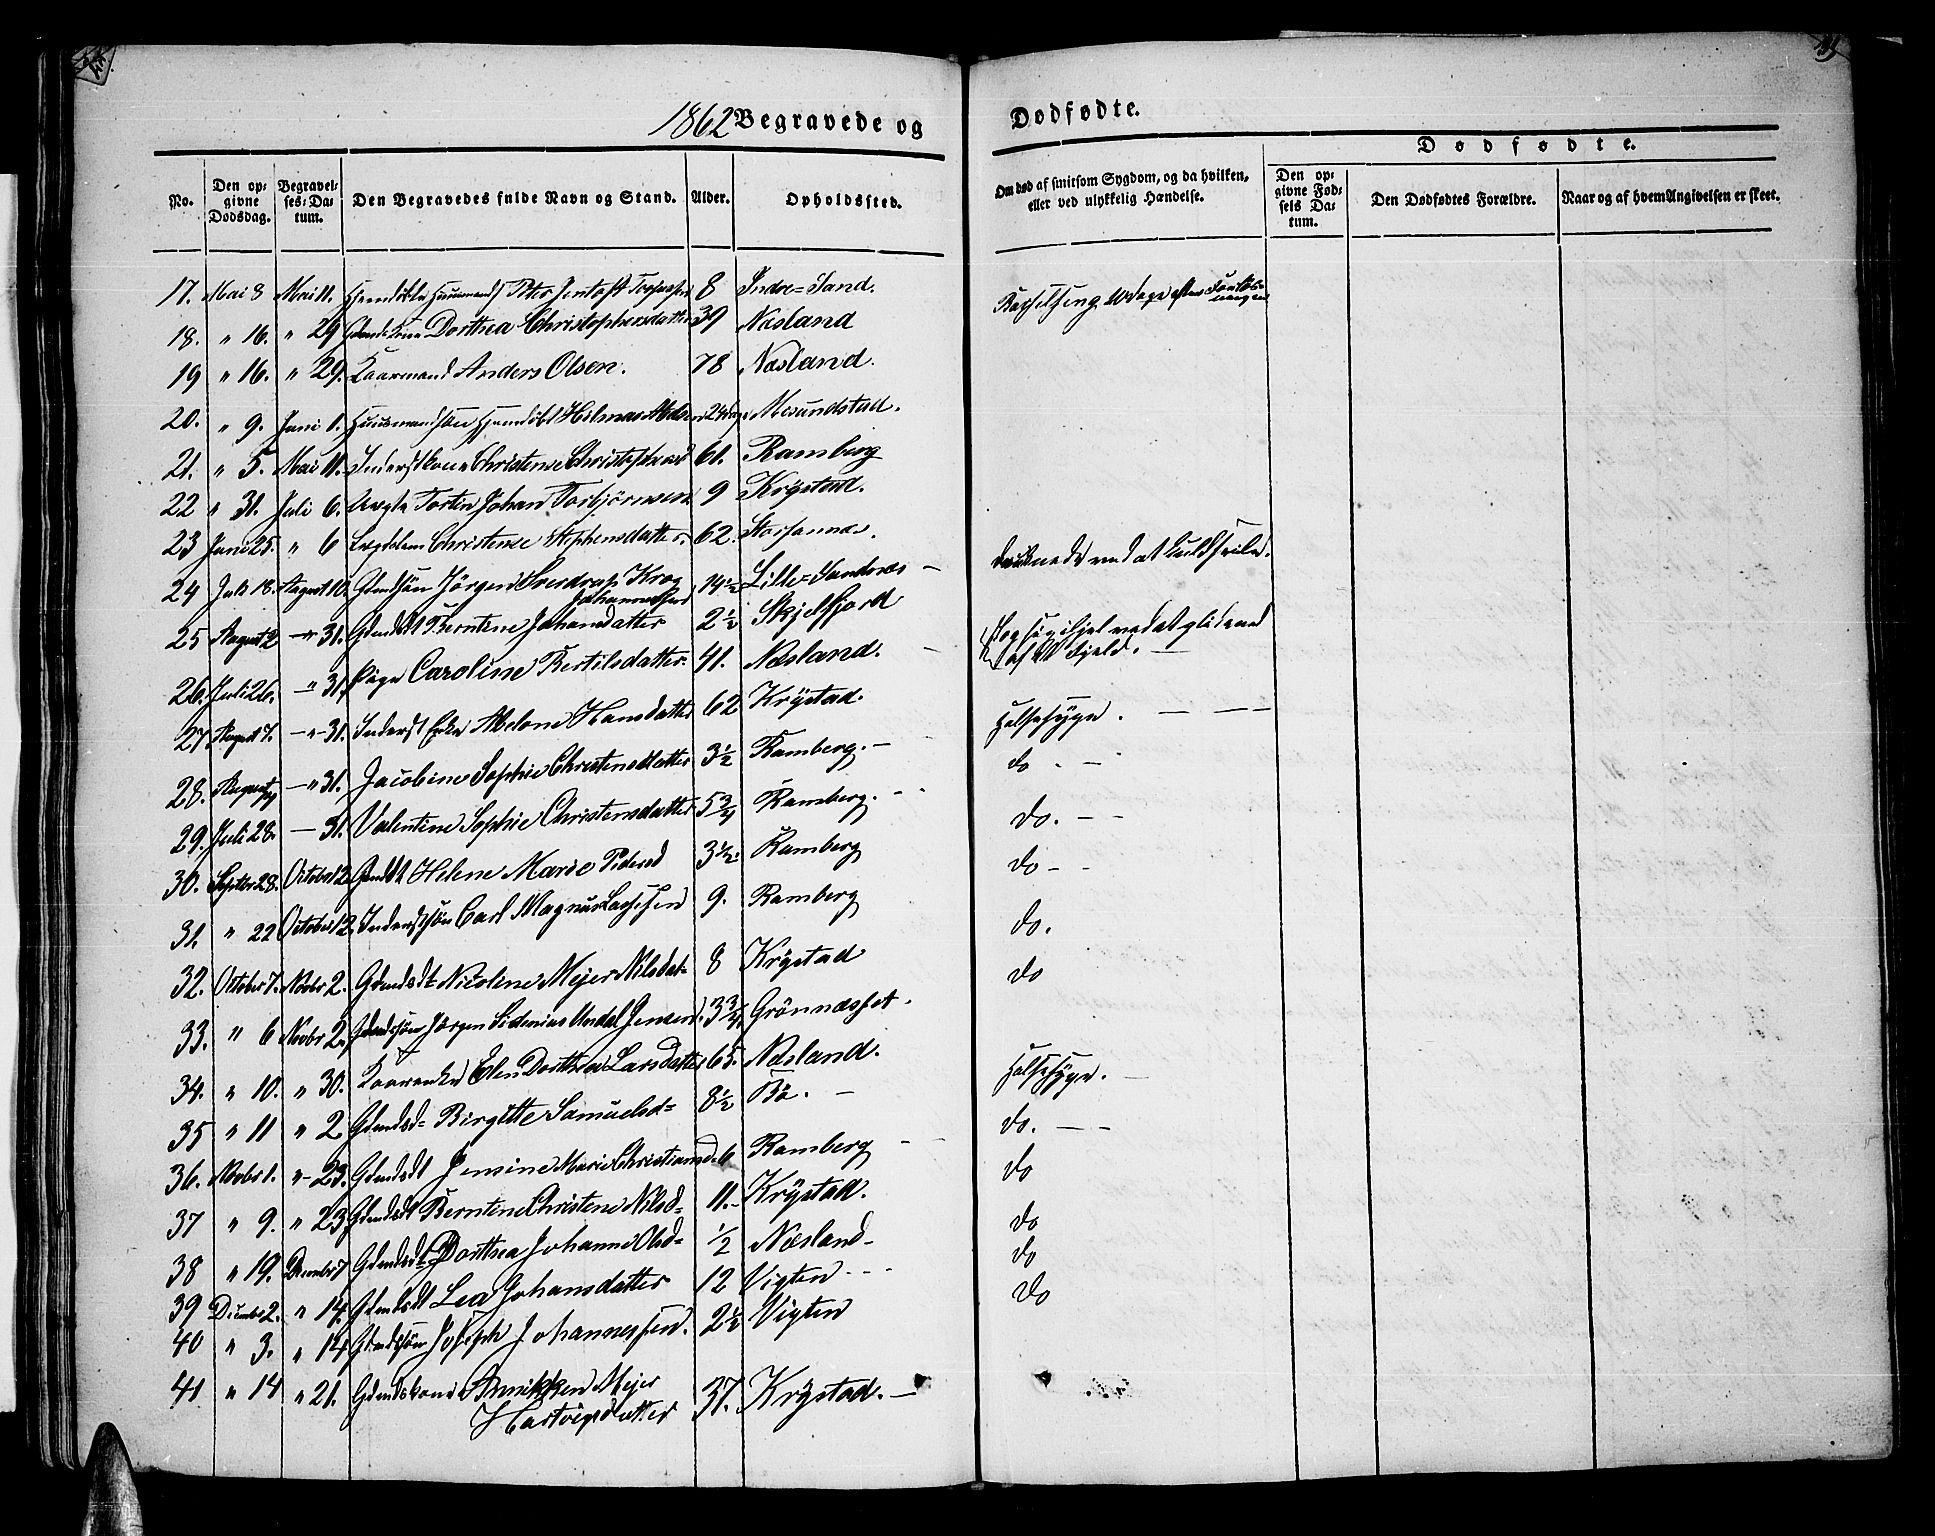 1862 Begravede og
Dødfødte.
No.
Den opgivne Dødsdag.
Begravelses-Datum.
Den Begravedes fulde Navn og Stand.
Alder.
Opholdssted.
Om død af smitsom Sygdom, og da hvilken, eller ved ulykkelig Hændelse.
Dødfødte.
Den opgivne Fødsels Datum.
Den Dødfødtes Forældre.
Naar og af hvem Angivelsen er skeet.
17. Mai 8 Mai 11. Peter Jentoft 8 Indre=Sand.
18. " 16. " 29 Dorthea Christophersdatter 39 Næsland
19 " 16. " 29. Kaarmand Anders Olsen. 78 Næsland.
20. " 9. Juni 1. Huusmandssøn 24 dage
21. " 5. Mai 11. Inderstkone Christense 61. Ramberg
22 " 31. Juli 6. Johan Torbjørnsen 9 Krystad.
23 Juni 25. " 6 Lægdslem Christense Stephensdatter. 62. Storsannæs.
24 Juli 18. August 10. Gdmdsøn Jørgen Sverdrup Krog Johannessen 14½ Lille=Sandnæs druknede ved at kuldseile.
25 August 2 —"— 31. Gdmdsdt Berntine Johansdatter 2½ Skjelfjord
26. Juli 26. —"31 Pige Caroline Bertilsdatter. 41. Næsland. slog sig ihjel ved at glide ned af et Fjeld.
27 August 7. —"—31. Inderst Enke Abelone Hansdatter 62 Krystad. Halssyge.
28. August —"31. Jacobine Sophie Christensdatter 3½ Ramberg. do
29. Juli 28. — 31. Valentine Sophie Christensdatter 5¾ Ramberg. do.
30. Septbr 28. October 12 Gmdsdt Helene Marie Pedersd 3½. Ramberg do
31. " 22 October 12. Inderstsøn Carl Magnus 9. Ramberg do.
32. October 7. Novbr 2. Gdmdsdt Nicoline Mejer Nilsdat= 8 Krystad do
33. " 6 Novbr 2. Gdmdssøn Jørgen Sidenius Undal Jensen. 3¾. Grønnæsset.
34. " 10. " 30. Kaarenke Elen Dorthea Larsdatter 65. Næsland. Halssyge.
35 " 11 " 2 Gdmdsd= Birgitte Samuelsd= 8½ Bø. do.
36. Novbr 1. "– 23. Gdmdsdt Jensine Marie Christiansd. 6 Ramberg do
37 " 9. " 23 Gdmdsdt Berntine Christene Nilsd= 11. Krystad. do
38 " 19. Decembr 7 Gdmdsdt Dorthea Johanne Olsd= ½ Næsland do
39 Decmbr 2. " 14. Gdmdsdt Lea Johansdatter 12 Vigten do
40 " 3. " 14 Gdmdssøn Joseph Johannessen. 2½ Vigten
41. " 14 " 21. Gdmdskone Annikken Mejer Hartvigsdatter 37. Krystad.